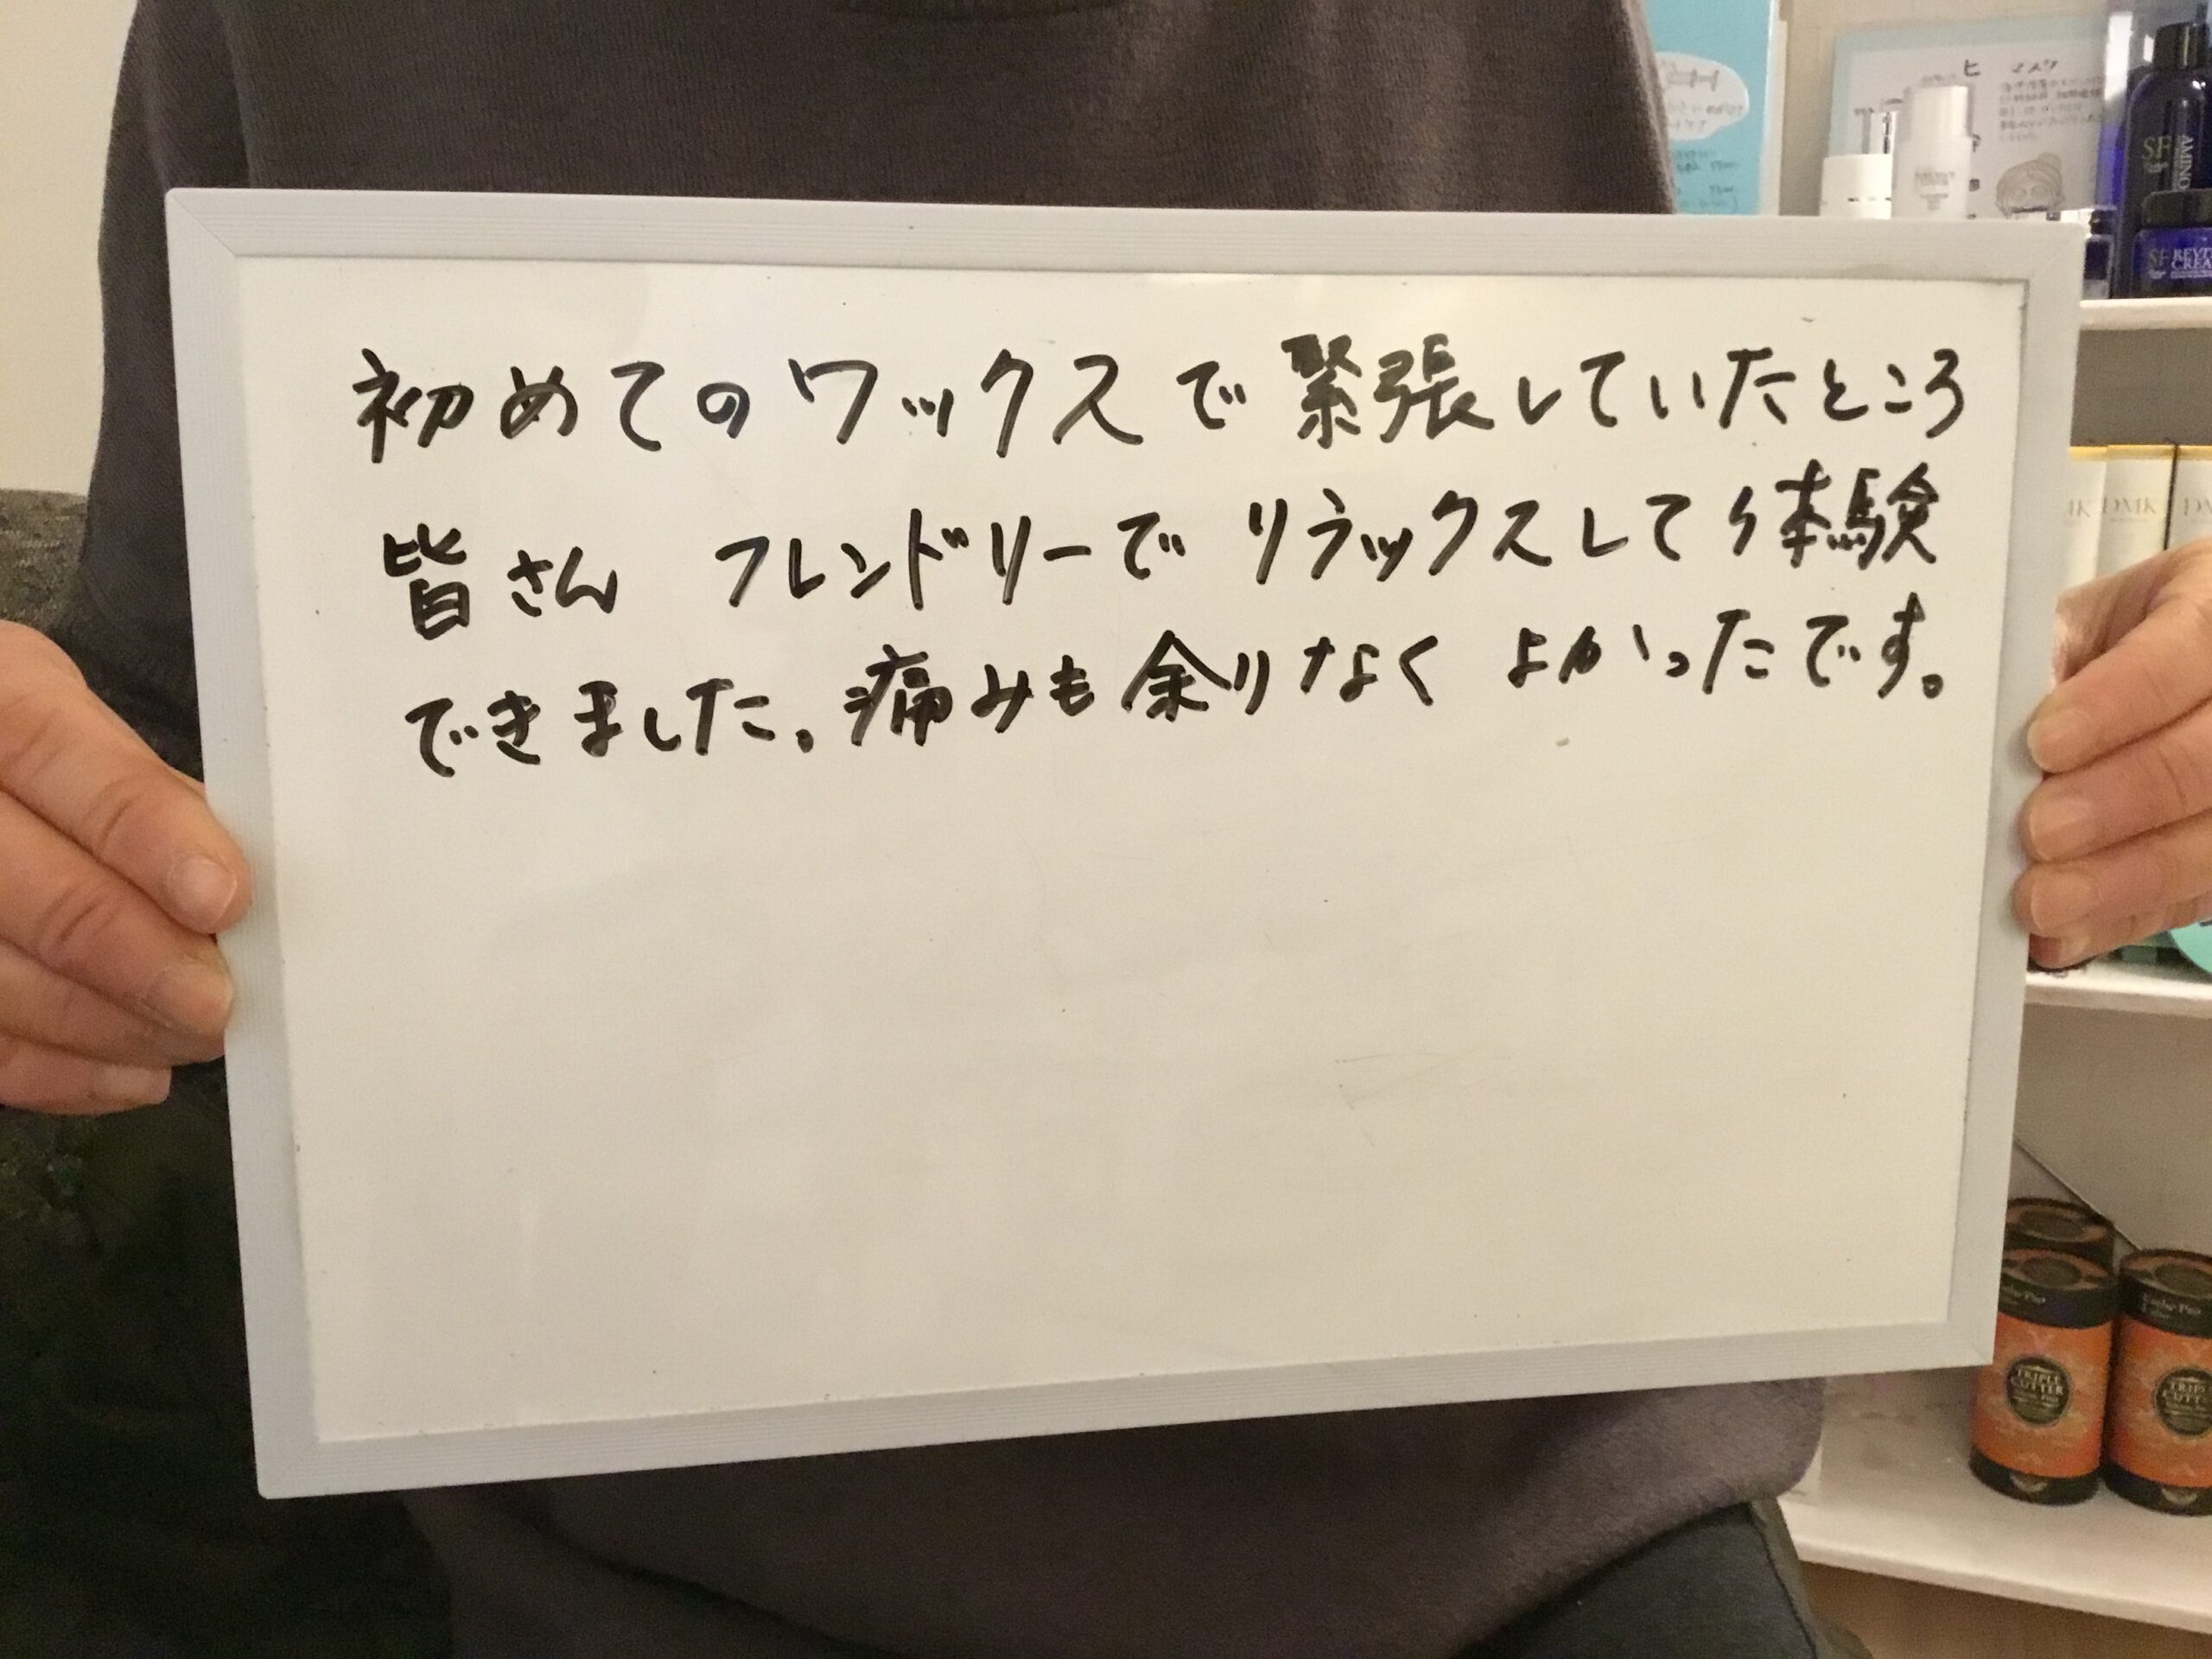 初めてのワックスで緊張していたところ
皆さん フレンドリーで リラックスして体験
できました。痛みも余りなく よかったです。
ヒ マスク
SF
AMINO
SF
DMK
TRIPLE
CUTTER
TRIPLE